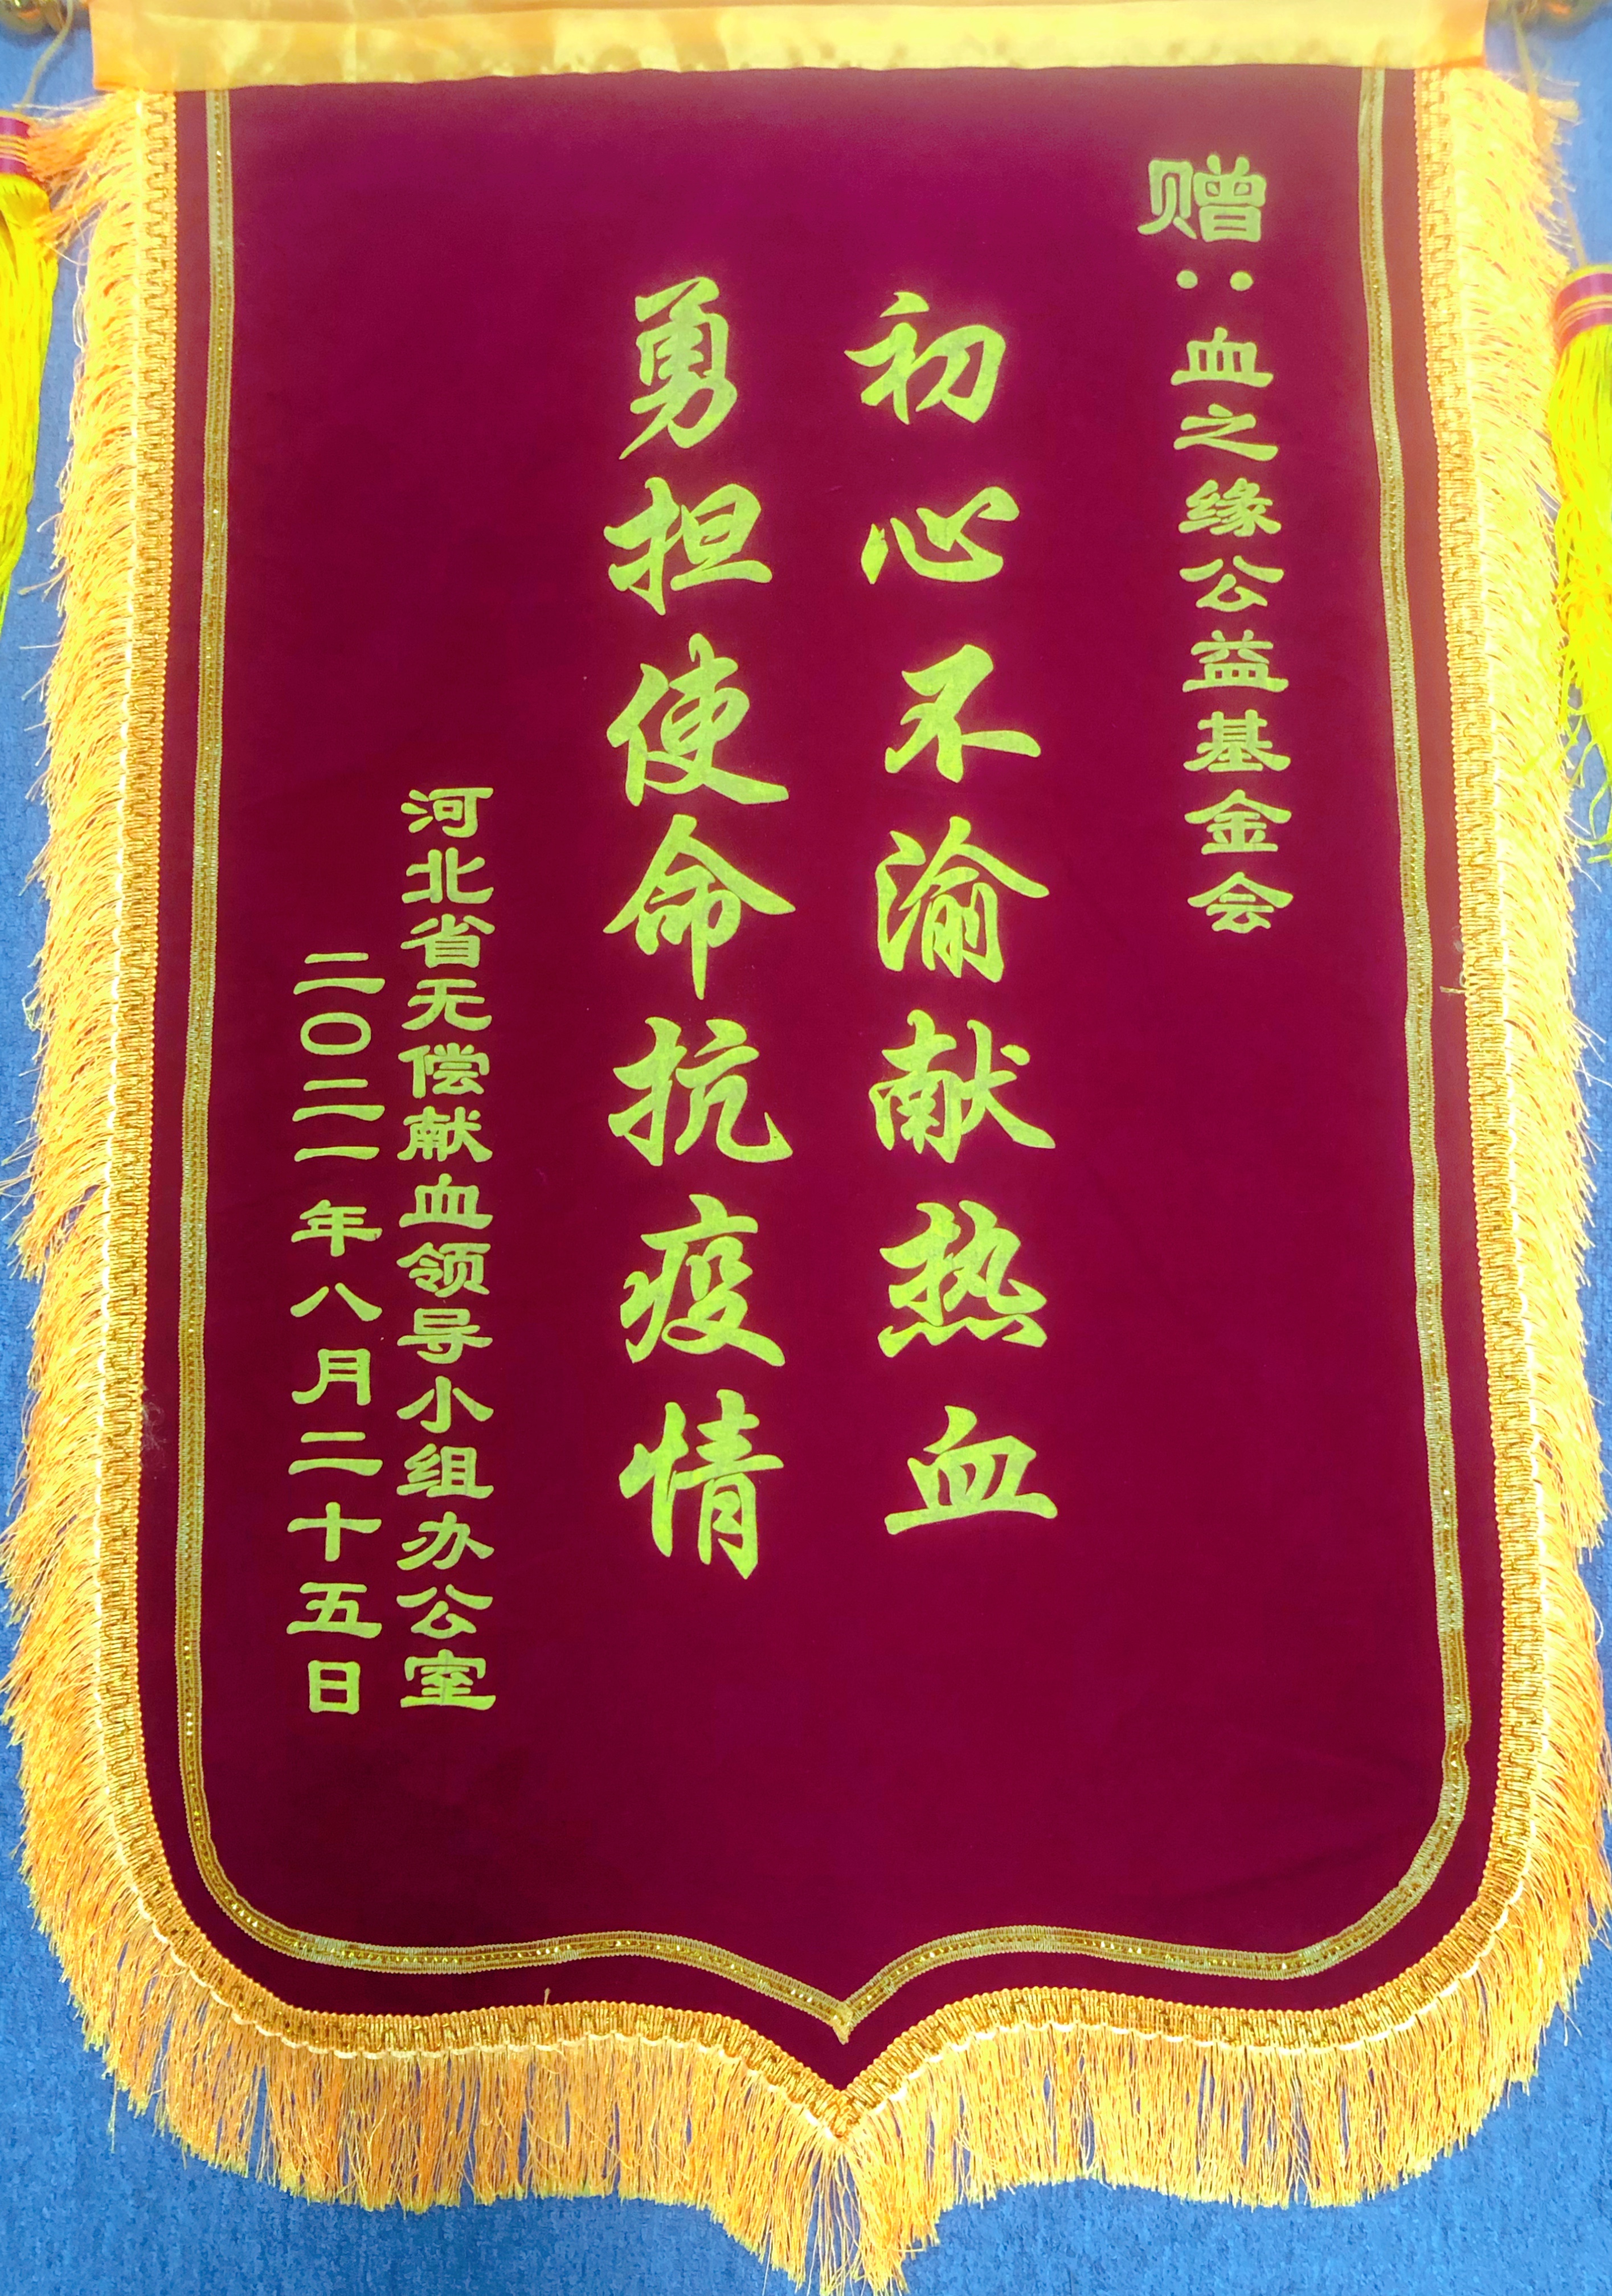 赠：血之缘公益基金会
初心不渝献热血
勇担使命抗疫情
河北省无偿献血领导小组办公室
二〇二一年八月二十五日